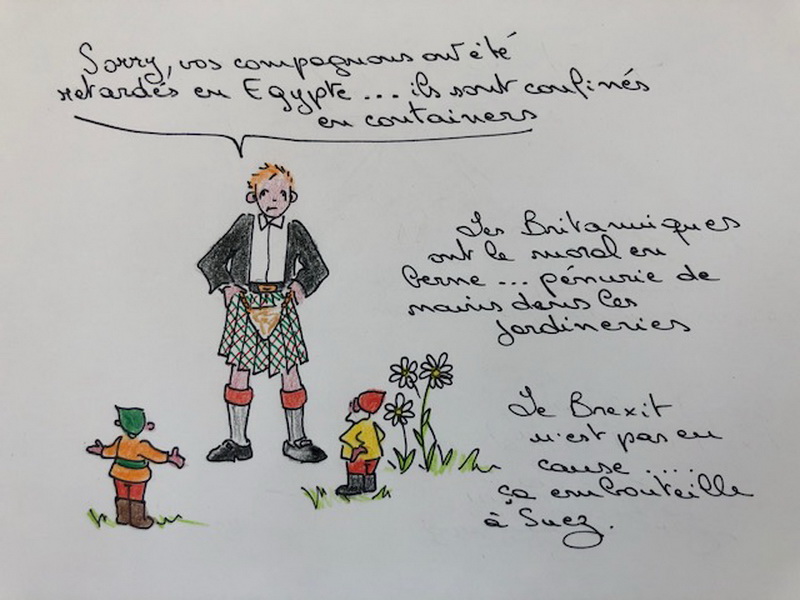 Sorry, vos compagnons ont été
retardés en Egypte ... ils sont confinés
en containers
Les Britanniques
ont le moral en
berne ... pénurie de
nains dans les
jardineries
Le Brexit
n'est pas en
cause .....
ça embouteille
à Suez.